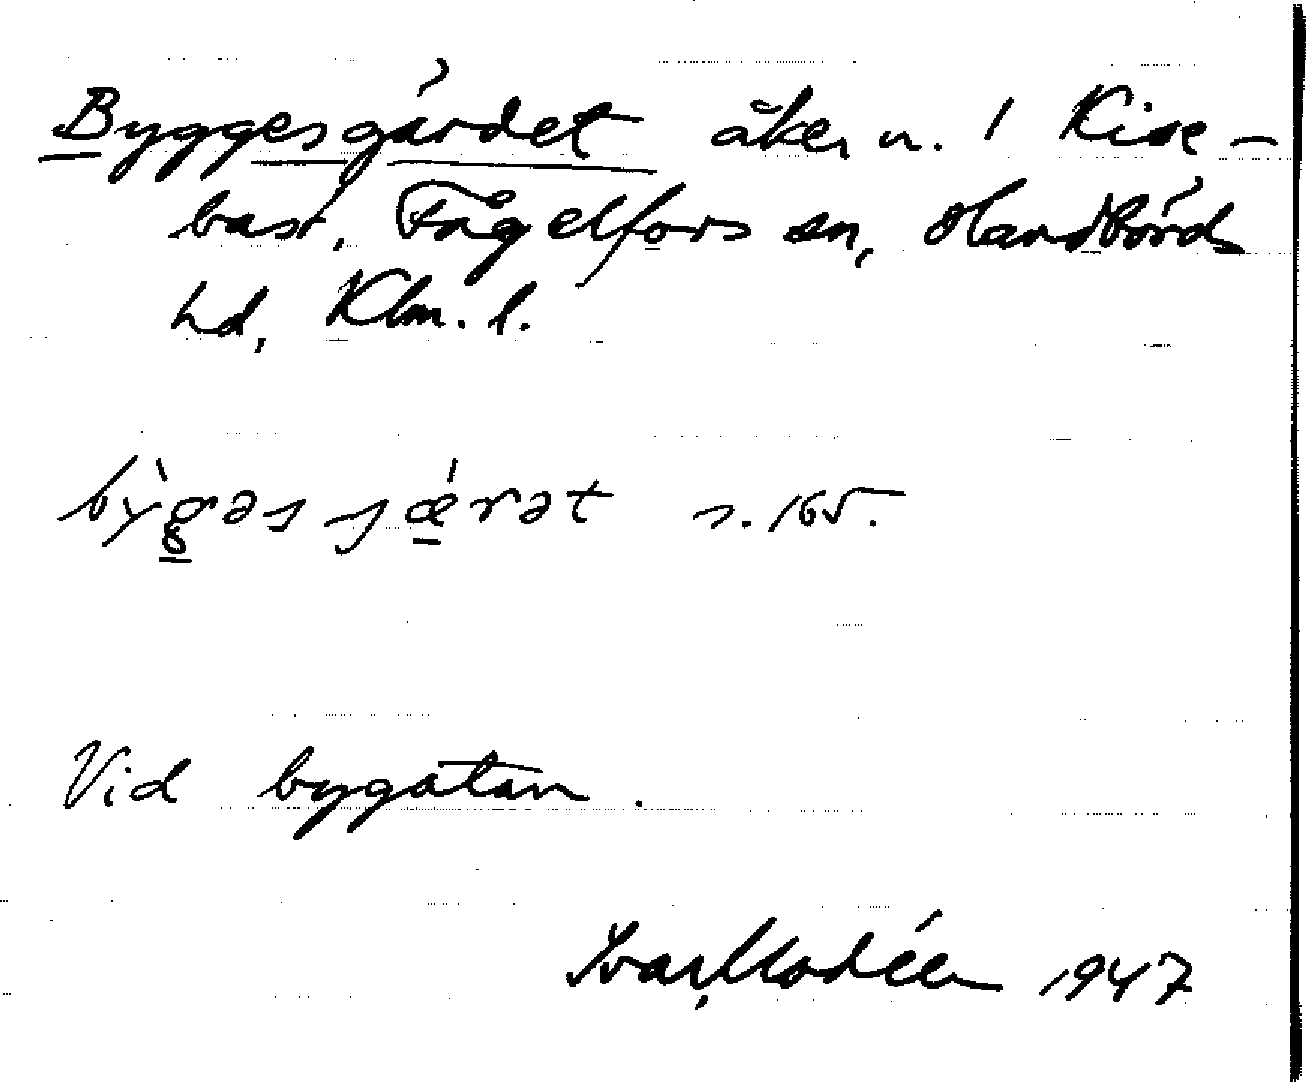 Byggesgärdet åker n. 1 Kise-
bast, Fågelfors sn, Handbörds
hd, Klm. l.
bỳgəs jǽrət s. 165.
Vid bygatan.
Ivar Modéer 1947